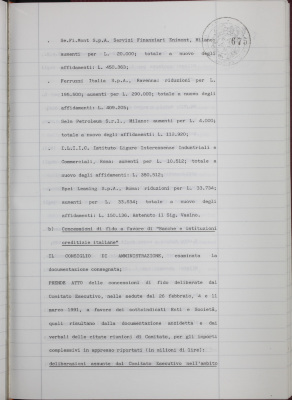 675
. Se.Fi.Mont S.p.A. Servizi Finanziari Enimont, Milano:
aumenti per L. 20.000; totale a nuovo degli
affidamenti: L.
. Ferruzzi Italia S.p.A., Ravenna: riduzioni per L.
aumenti per L. 290.000; totale a nuovo degli
affidamenti: L.
. Sele Petroleum S.r.l., Milano: aumenti per L. 4.000;
totale a nuovo degli affidamenti: L.
. I.L.I.I.C. Istituto Ligure Interessenze Industriali e
Commerciali, Roma: aumenti per L. 10.512; totale a
nuovo degli affidamenti: L.
. Leasing S.p.A., Roma: riduzioni per L. 33.734;
aumenti per L. totale a nuovo degli
affidamenti: L. 150.136. Astenuto il Sig.
b) Concessioni di fido a favore di "Banche e istituzioni
creditizie italiane"
IL CONSIGLIO DI AMMINISTRAZIONE, esaminata la
documentazione consegnata;
PRENDE ATTO delle concessioni di fido deliberate dal
Comitato Esecutivo, nelle sedute del 28 febbraio, 4 e 11
marzo 1991, a favore dei sottoindicati Enti e Società,
quali risultano dalla documentazione anzidetta e dai
verbali delle citate riunioni di Comitato, per gli importi
complessivi in appresso riportati (in milioni di lire):
deliberazioni assunte dal Comitato Esecutivo nell'ambito